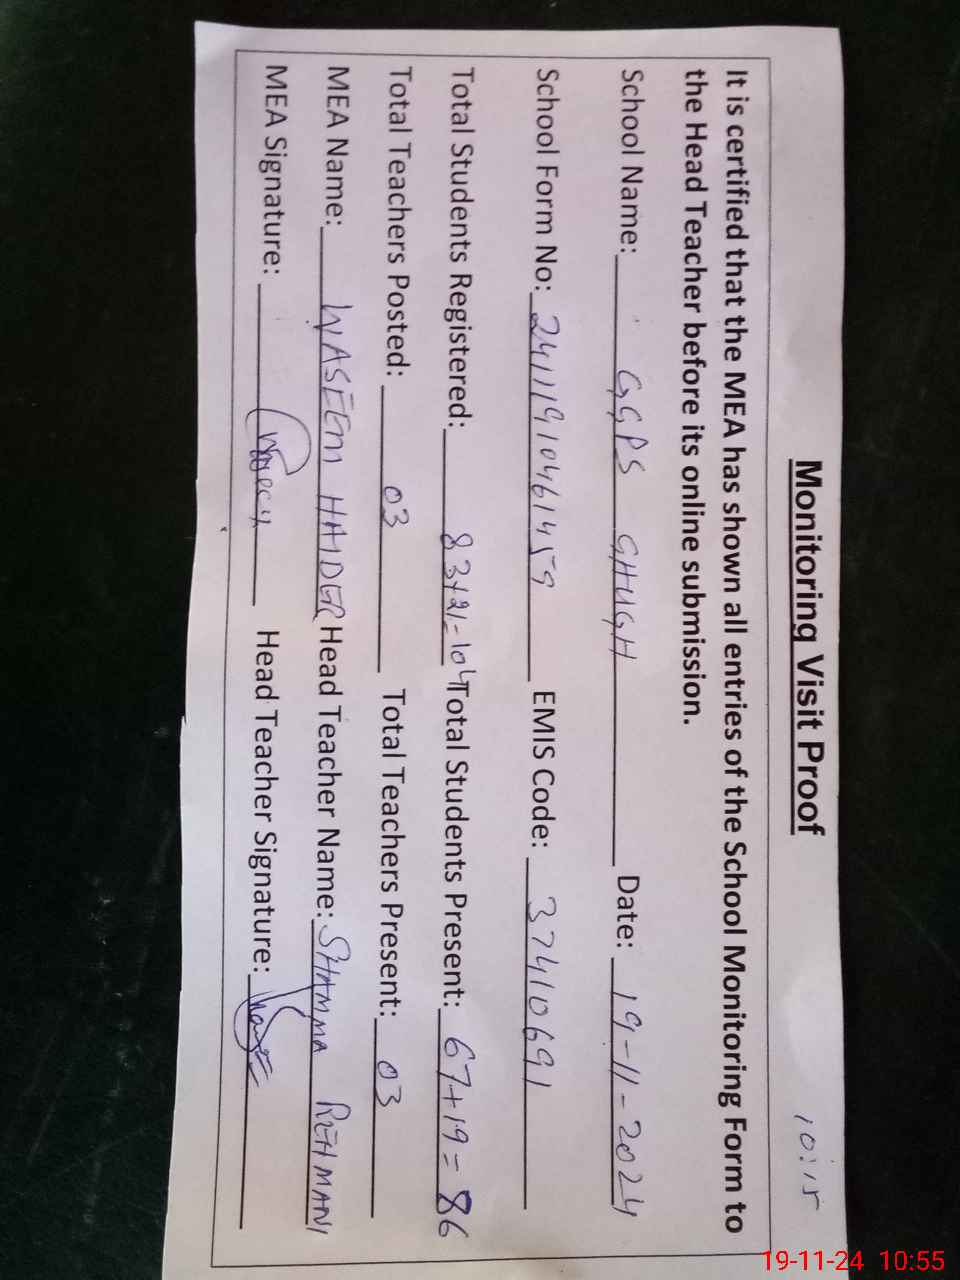 10:15
Monitoring Visit Proof
It is certified that the MEA has shown all entries of the School Monitoring Form to
the Head Teacher before its online submission.
School Name: GGPS GHUGH Date: 19-11-2024
School Form No: 24111910461459 EMIS Code: 37410691
Total Students Registered: 83+21=104 Total Students Present: 67+19=86
Total Teachers Posted: 03 Total Teachers Present: 03
MEA Name: WASEEM HAIDER Head Teacher Name: SHAMMA REHMANI
MEA Signature: Head Teacher Signature:
19-11-24 10:55